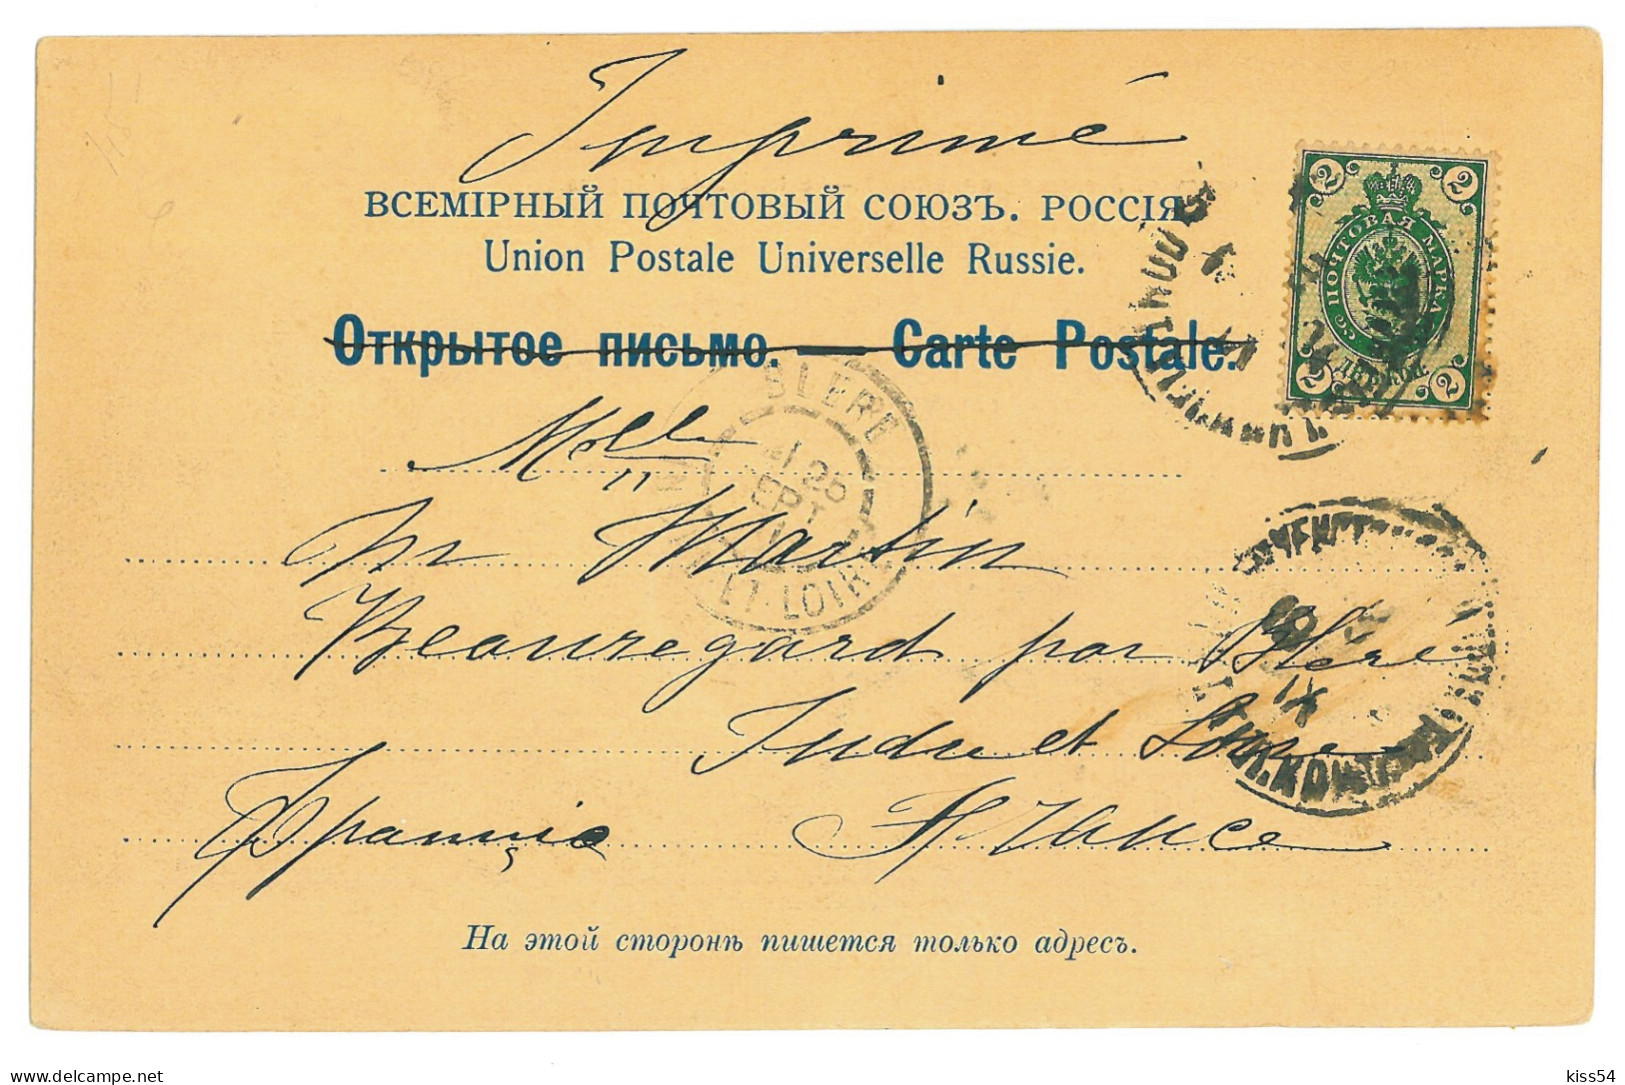 Imprimé
ВСЕМІРНЫЙ ПОЧТОВЫЙ СОЮЗЪ. РОССІЯ
Union Postale Universelle Russie.
Открытое письмо. — Carte Postale.
2 2
ПОЧТОВАЯ МАРКА
2 ДВЕ КОП. 2
BLERE
25
SEPT
ET-LOIRE
Melle
Martin
Beauregard par Bleré
Indre et Loire
IX
Франція France
На этой сторонѣ пишется только адресъ.
delcampe.net
kiss54